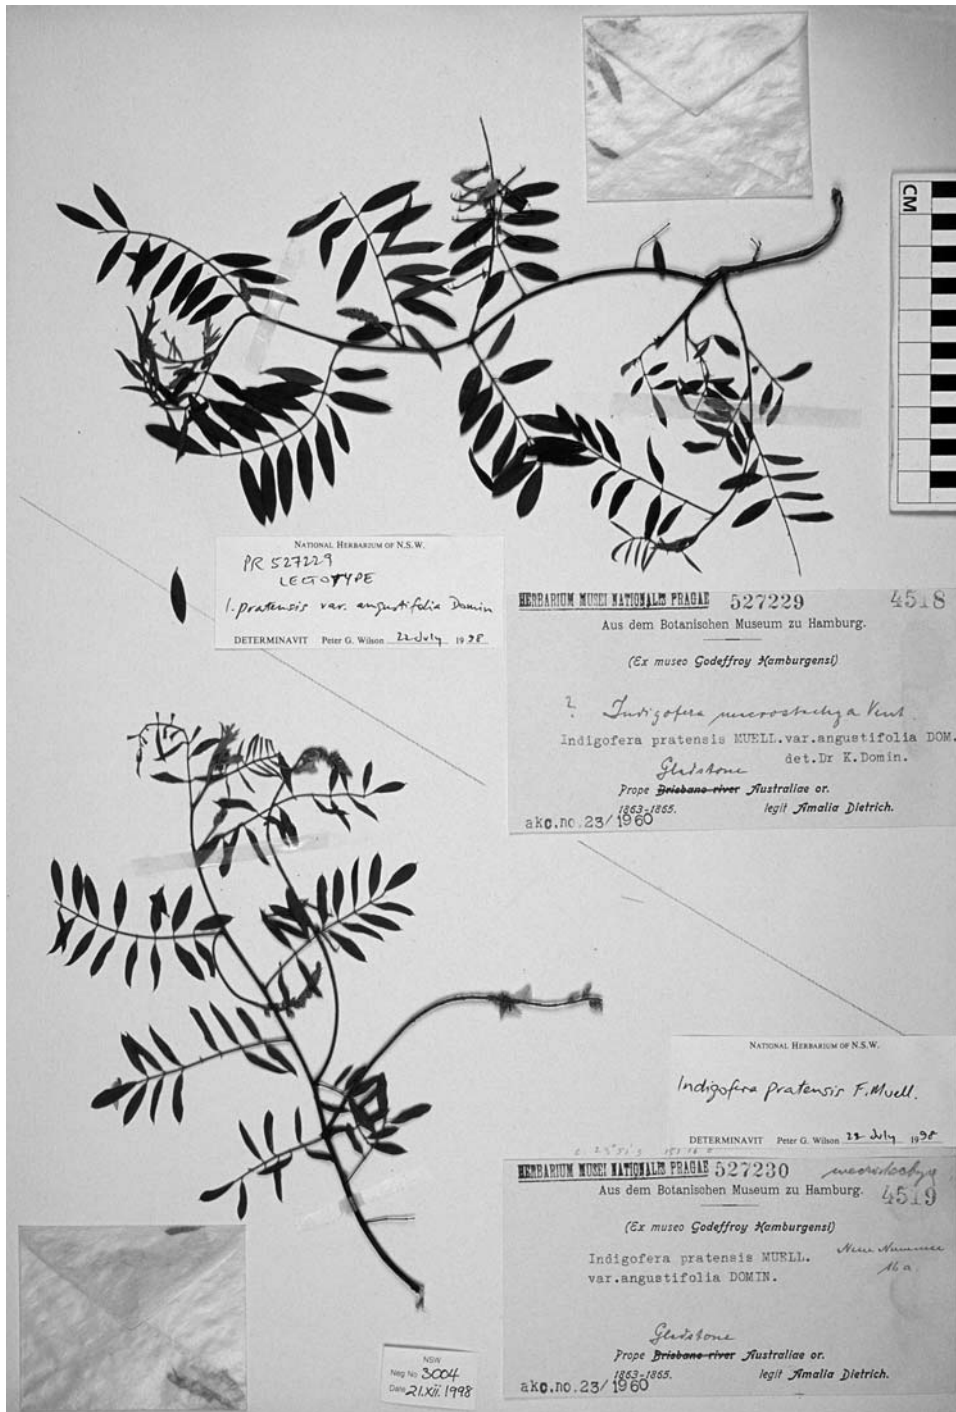 CM
NATIONAL HERBARIUM OF N.S.W.
PR 527229
LECTOTYPE
I. pratensis var. angustifolia Domin
DETERMINAVIT Peter G. Wilson 22 July 1998
HERBARIUM MUSEI NATIONALIS PRAGAE 527229 4518
Aus dem Botanischen Museum zu Hamburg.
(Ex museo Godeffroy Hamburgensi)
? Indigofera Vent.
Indigofera pratensis MUELL.var.angustifolia DOM.
det.Dr K.Domin.
Gladstone
Prope Brisbane river Australiae or.
1863-1865. legit Amalia Dietrich.
akc.no.23/1960
NATIONAL HERBARIUM OF N.S.W.
Indigofera pratensis F. Muell.
DETERMINAVIT Peter G. Wilson 22 July 1998
HERBARIUM MUSEI NATIONALIS PRAGAE 527230
Aus dem Botanischen Museum zu Hamburg. 4519
(Ex museo Godeffroy Hamburgensi)
Indigofera pratensis MUELL. Neue Nummer
var.angustifolia DOMIN. 16a.
Gladstone
Prope Brisbane river Australiae or.
1863-1865. legit Amalia Dietrich.
akc.no.23/1960
NSW
Neg No 3004
Date 21.XII.1998